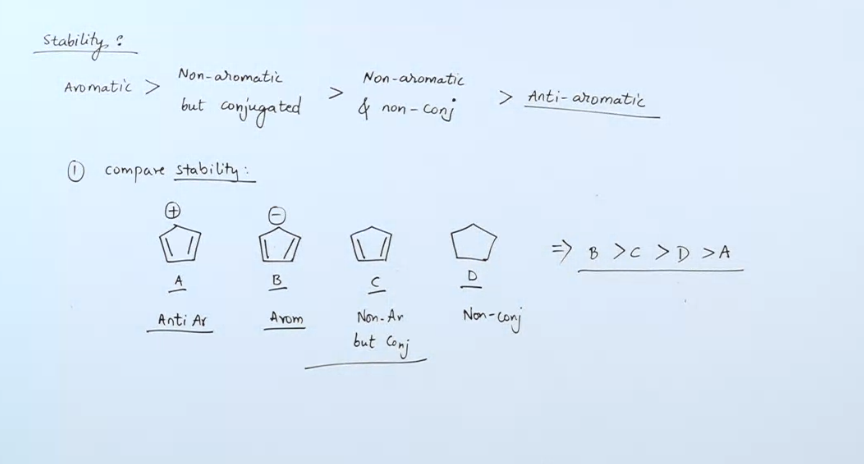 Stability :
Aromatic > Non-aromatic but conjugated > Non-aromatic & non-conj > Anti-aromatic
① compare stability :
⊕ ⊖
A B C D ⇒ B > C > D > A
Anti Ar Arom Non-Ar but Conj Non-conj